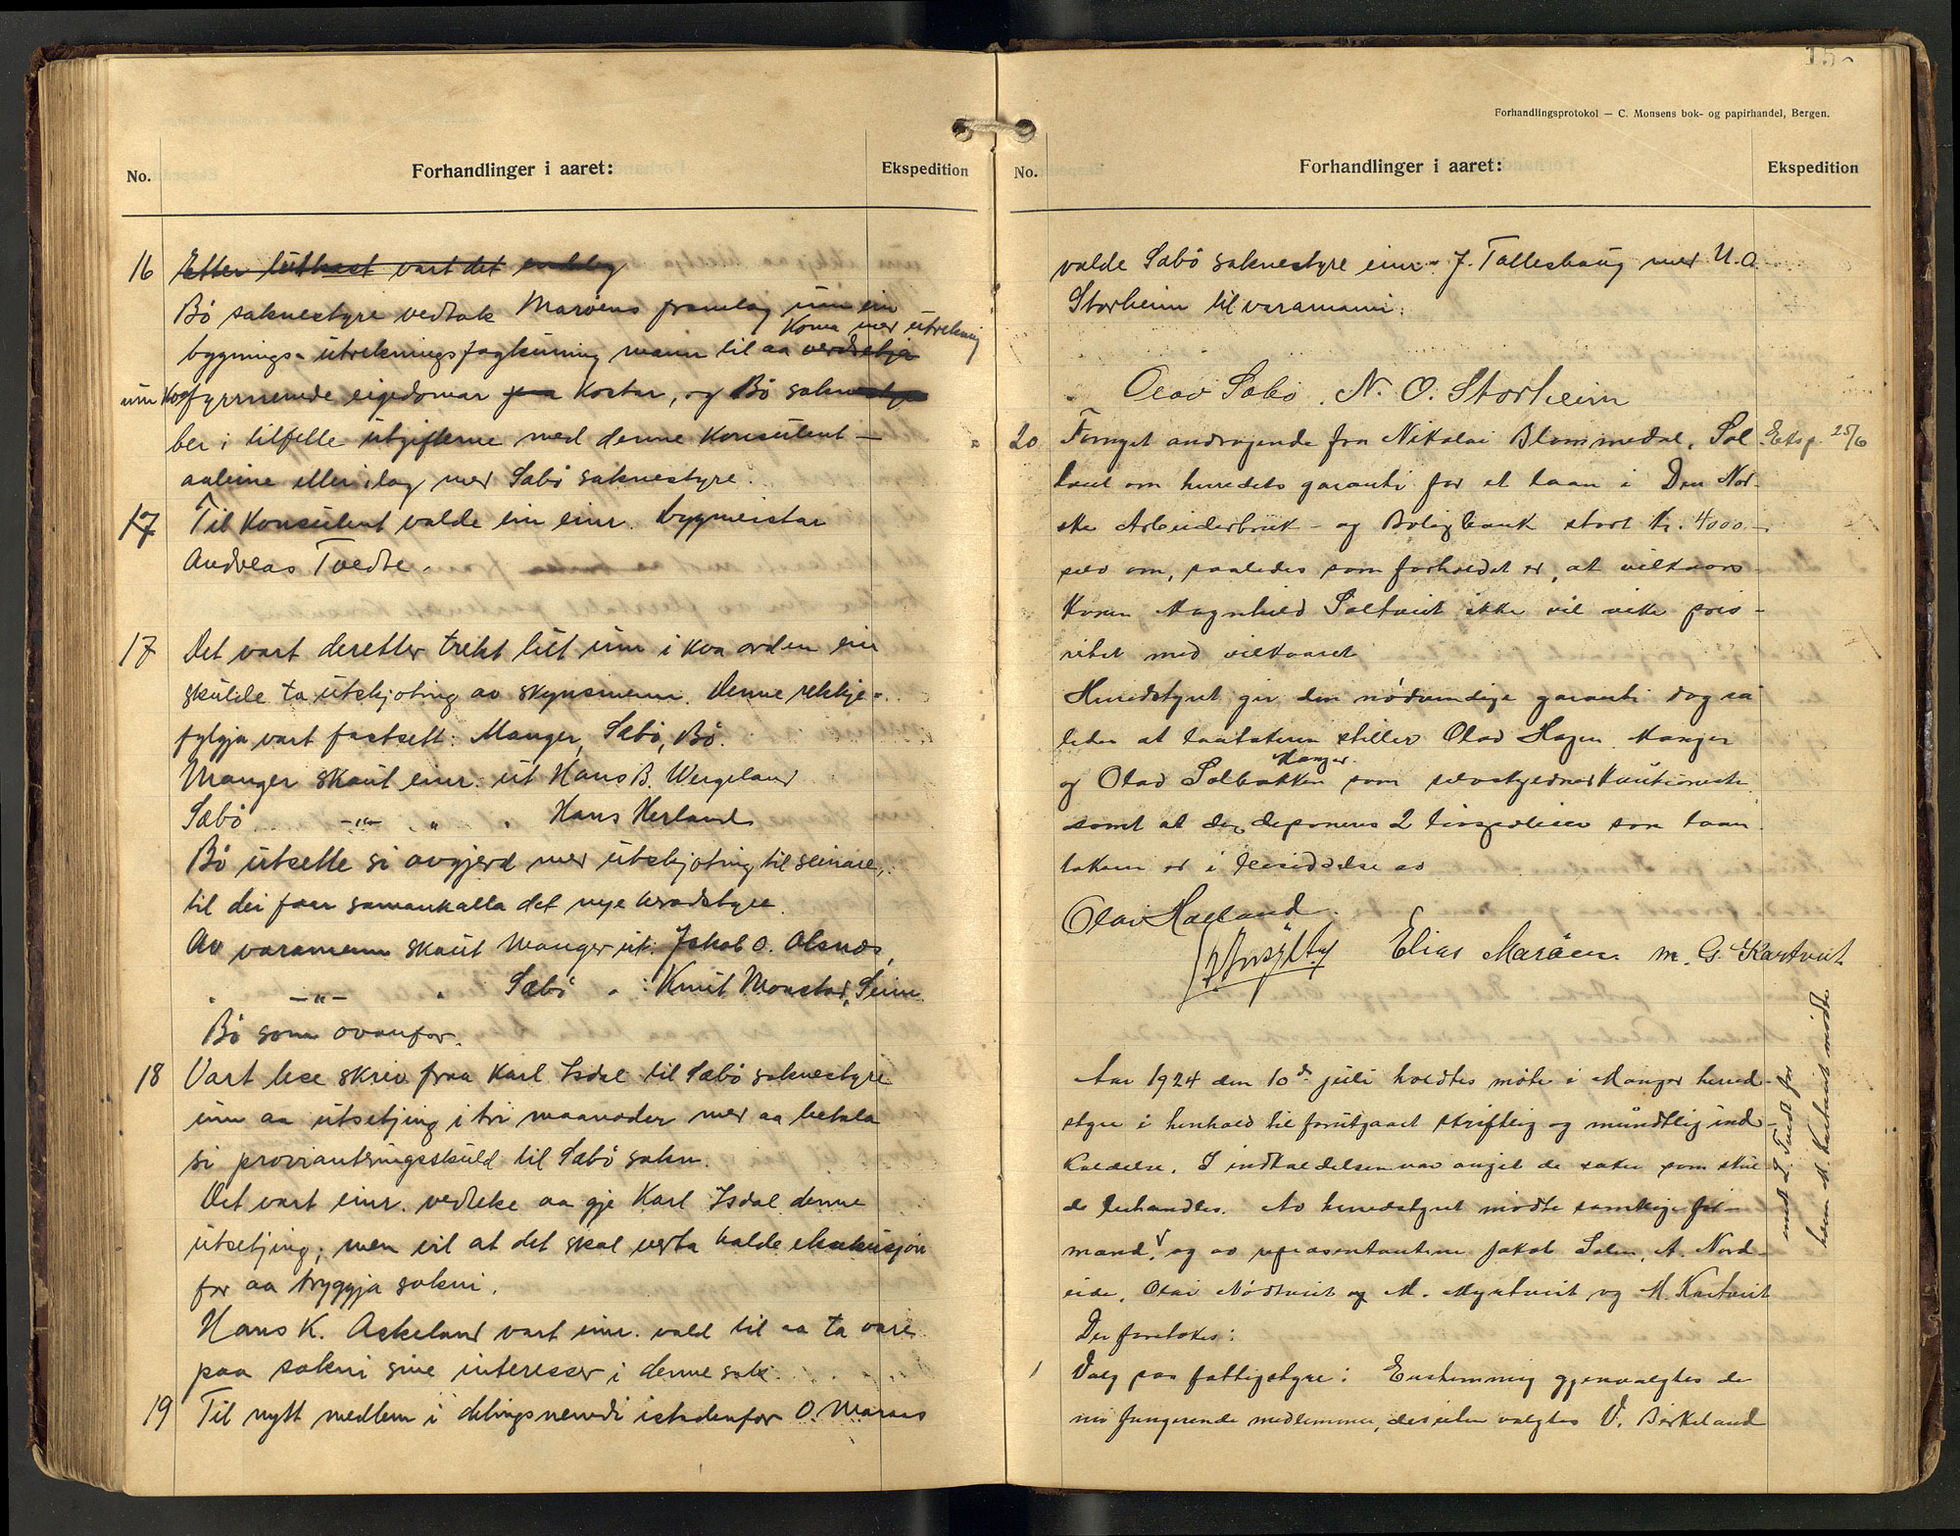 No.
Forhandlinger i aaret:
Ekspedition
16 Etter lutkast vart det
Bö soknestyre vedtok Maröens framlag um ein
koma med utrekning
bygnings- utreknings fagkunnig mann til aa verdsetja
um kva fyrrnemde eigedomar paa kostar, og Bö sokn
ber i tilfelle utgifterne med denne konsulent
aaleine eller i lag med Sæbö soknestyre.
17 Til konsulent valde ein einr. bygmeistar
Andreas Tvedte.
17 Det vart deretter trekt lut um i kva orden ein
skulde ta utskjoting av skynsmenn. Denne rekkje-
fylgja vart fastsett: Manger, Sæbö, Bö.
Manger skaut einr. ut Hans B. Wergeland
Sæbö -"- " . Hans Herland
Bö utsette si avgjerd med utskjoting til seinare,
til dei faar samankalla det nye heradstyre.
Av varamenn skaut Manger ut: Jakob O. Alsnes,
-"- Sæbö : Knut Monstad, Seim.
Bö som ovanfor.
18 Vart lese skriv fraa Karl Isdal til Sæbö soknestyre
um aa utsetjing i tri maanader med aa betala
si provianteringsskuld til Sæbö sokn.
Det vart einr. vedteke aa gje Karl Isdal denne
utsetjing, men vil at det skal verta halde eksekusjon
for aa tryggja sokni.
Hans K. Askeland vart einr. vald til aa ta vare
paa sokni sine interesser i denne sak.
19 Til nytt medlem i delingsnemdi istadenfor O. Maraas
Forhandlingsprotokol — C. Monsens bok- og papirhandel, Bergen.
No.
Forhandlinger i aaret:
Ekspedition
valde Sæbö soknestyre einr. J. Talleshaug med N. O.
Storheim til varamann.
Olav Sæbö. N. O. Storheim
20 Fornyet andragende fra Nikolai Blommedal, Sol Eksp. 25/6
om herredets garanti for et laan i Den Nor-
ske Arbeiderbruk- og Boligbank stort kr. 4000.-
selv om, saaledes som forholdet er, at vilkaars
konen Magnhild Soltveit ikke vil vike prio-
ritet med vilkaaret
Herredstyret gir den nödvendige garanti dog saa
ledes at laantakeren stiller Olav Hagen Manger
Manger.
og Olav Solbakken som selvskyldnerkautionister
samt at der deponeres 2 livspoliser som laan
takeren er i besiddelse av
Olav Halland.
Elias Maröen. M. G. Kartveit
Aar 1924 den 10de juli holdtes möte i Manger herred-
styre i henhold til forutgaaet skriftlig og mundtlig ind-
kaldelse. I indkaldelsen var anget de saker som skul-
de behandles. Av herredstyret mödte samtlige for-
mænd, og av repræsentanterne Jakob Solem, A. Nord-
eide, Olai Nödtveit og M. Myrtveit og M. Kartveit
Der foretokes:
1 Valg paa fattigstyre: Enstemmig gjenvalgtes de
nu fungerende medlemmer, desuten valgtes V. Birkeland
und. L. Tveit for
hvem M. Kartveit mödte